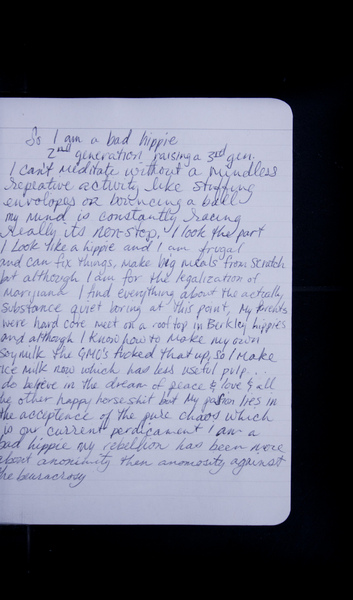 So I am a bad hippie
2nd generation raising a 3rd gen.
I can't meditate without a mindless
repeative activity like stuffing
envolopes or bouncing a ball
my mind is constantly racing
really its non-stop. I look the part
I look like a hippie and I am frugal
and can fix things, make big meals from scratch
but although I am for the legalization of
marijuana I find everything about the actually
substance quiet boring at this point, My Parents
were hard core meet on a roof top in Berkley hippies
and although I know how to make my own
soy milk the GMO's fucked that up, so I make
rice milk now which has less useful pulp...
do believe in the dream of peace & love & all
the other happy horseshit but my passion lies in
the acceptance of the pure chaos which
is our current perdicament I am a
bad hippie my rebellion has been more
about anonimity then anomosity against
the beuracrosy